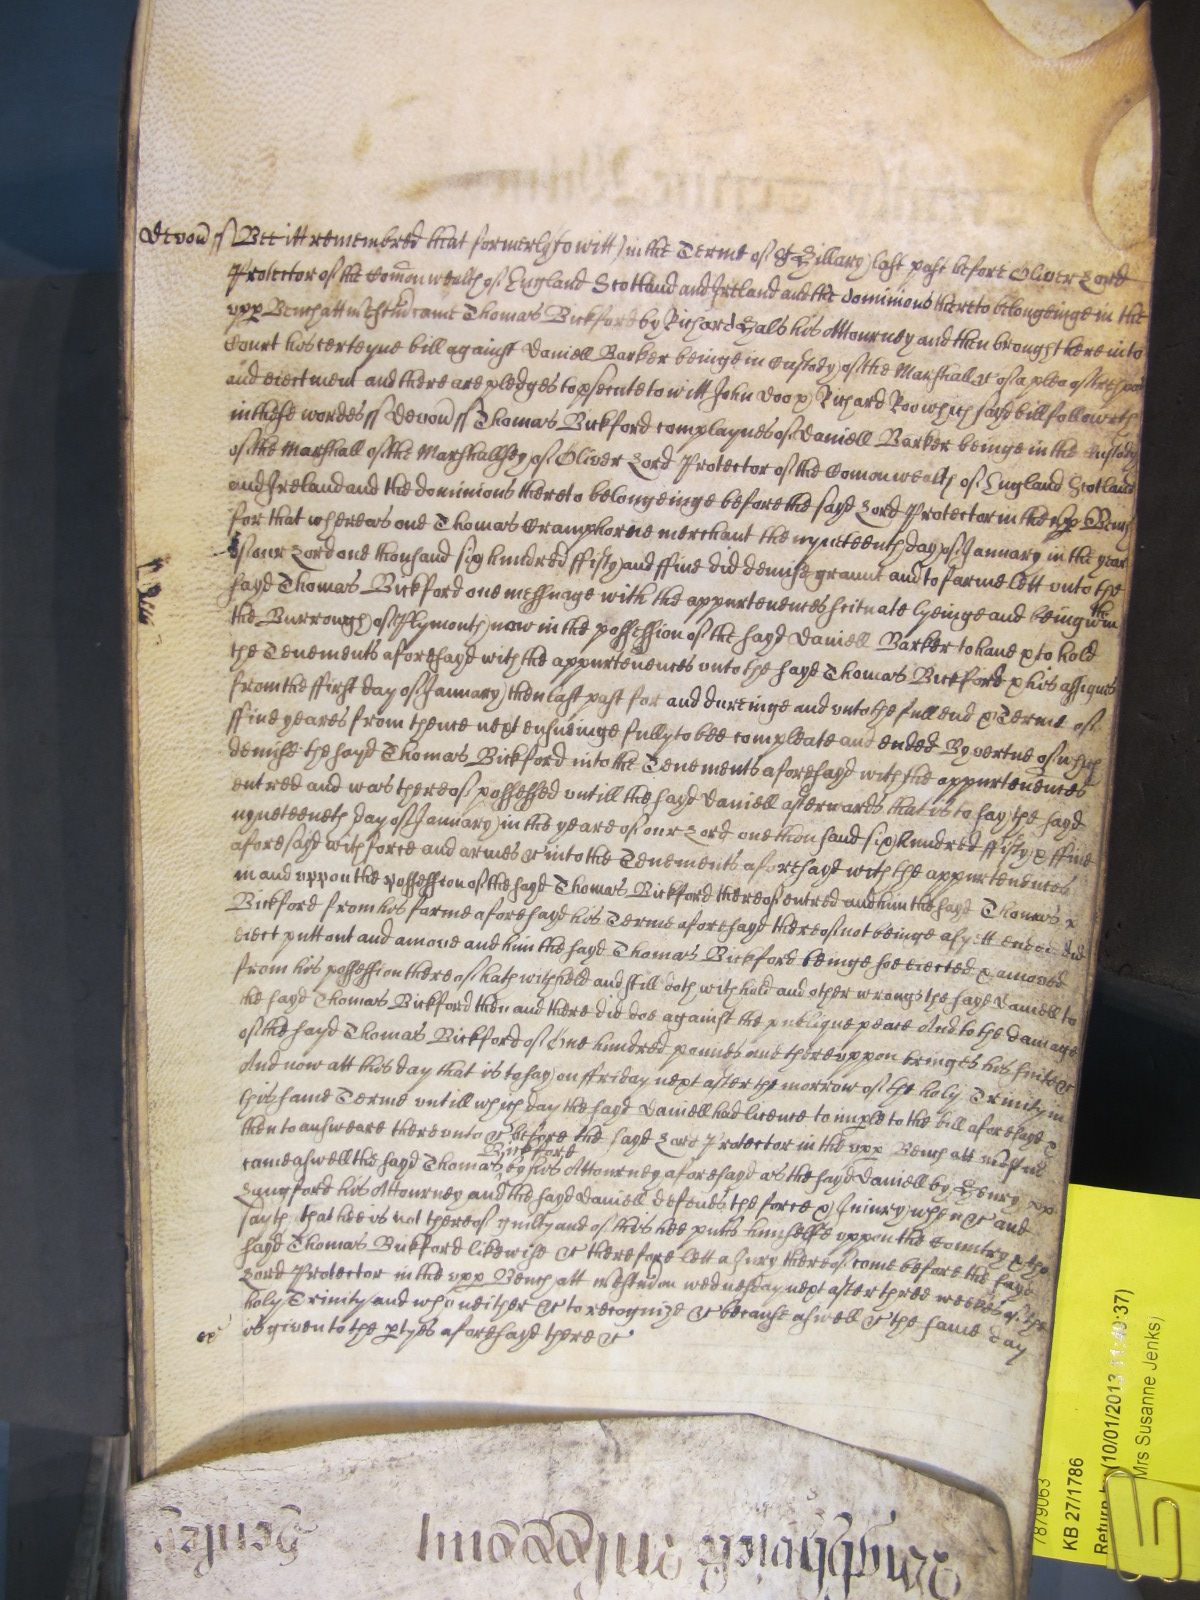 Devon ss Bee itt remembred that formerly (to witt) in the Terme of St Hillary last past before Oliver Lord
Protector of the Comonwealth of England Scotland and Ireland and the dominions thereto belongeinge in the
upp Bench att Westm came Thomas Bickford by Richard Hals his Attourney and then brought here into
Court his certeyne bill against Daniell Barker beinge in Custody of the Marshall &c of a plea of trespas
and eiectment and there are pledges to psecute to witt John Doo & Richard Roo which sayd bill followeth
in these wordes ss Devon ss Thomas Bickford complaynes of Daniell Barker beinge in the Custody
of the Marshall of the Marshallsey of Oliver Lord Protector of the Comonwealth of England Scotland
and Ireland and the dominions thereto belongeinge before the sayd Lord Protector in the upp Bench
for that whereas one Thomas Cramphorne merchant the nyneteenth day of January in the year
of our Lord one thousand six hundred fifty and ffive did demise graunt and to farme lett unto the
sayd Thomas Bickford one messuage with the appurtenences scituate lyeinge and being wthin
the Burrough of Plymouth now in the possession of the sayd Daniell Barker to have & to hold
the Tenements aforesayd with the appurtenences unto the sayd Thomas Bickford & his assignes
from the ffirst day of January then last past for and dureinge and unto the full end & Terme of
ffive yeares from thence next ensueinge fully to bee compleate and ended By vertue of which
demise the sayd Thomas Bickford into the Tenements aforesayd with the appurtenences
entred and was thereof possessed untill the sayd Daniell afterwards that is to say the sayd
nyneteenth day of January in the yeare of our Lord one thousand six hundred ffifty & ffive
aforesayd with force and armes &c into the Tenements aforesayd with the appurtenences
in and uppon the possession of the sayd Thomas Bickford thereof entred and him the sayd Thomas
Bickford from his farme aforesayd his Terme aforesayd thereof not beinge as yett ended did
eiect putt out and amove and him the sayd Thomas Bickford beinge soe eiected & amoved
from his possession thereof hath withheld and still doth with hold and other wrongs the sayd Daniell to
the sayd Thomas Bickford then and there did doe against the publique peace And to the damage
of the sayd Thomas Bickford of One hundred pounds and thereuppon bringes his suite &c
And now att this day that is to say on ffriday next after the morrow of the holy Trinity in
this same Terme untill which day the sayd Daniell had licence to imple to the bill aforesayd &
then to answeare thereunto &c before the sayd Lord Protector in the upp Bench att Westm
came aswell the sayd Thomas Bickford by his Attourney aforesayd as the sayd Daniell by Henry
Langford his Attourney and the sayd Daniell defends the force & Iniury when &c and
sayth that hee is not thereof guilty and of this hee putts himselfe uppon the Country & the
sayd Thomas Bickford likewise &c therefore lett a Jury thereof come before the sayd
Lord Protector in the upp Bench att Westm on wednesday next after three weekes of the
holy Trinity and who neither &c to recognize &c because aswell &c the same day
ex is given to the ptyes aforesayd there &c
7879063
KB 27/1786
Return by (10/01/2013 11:40:37)
Mrs Susanne Jenks)